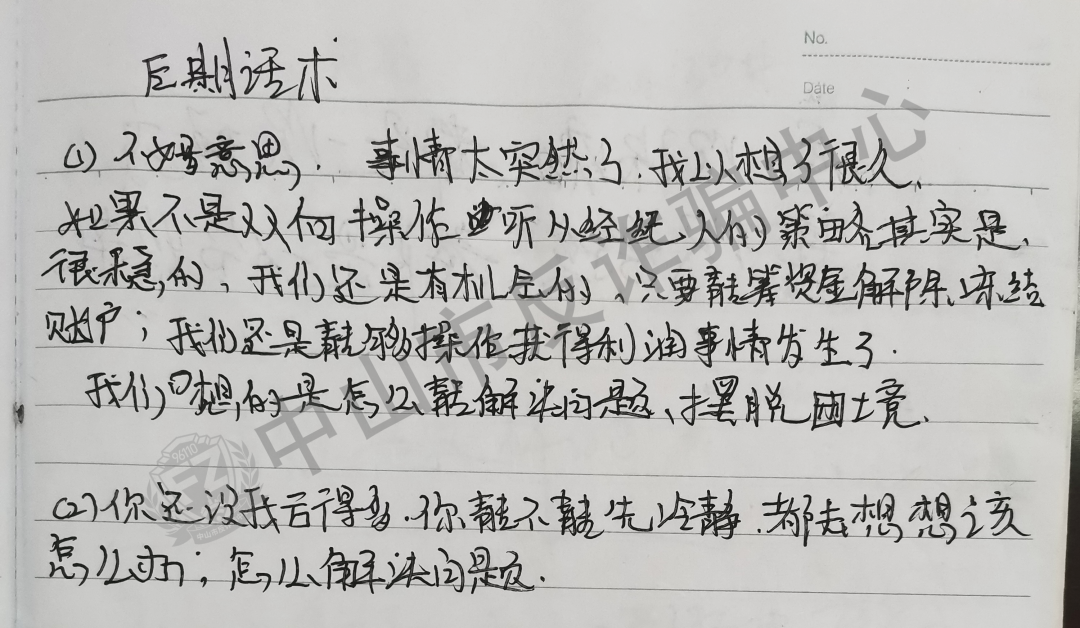 No.
Date
后期话术
(1) 不好意思, 事情太突然了.我以想了很久、
如果不是 操作 听从经纪人的策略其实是、
很稳的, 我们还是有机会的、只要能筹资金解除冻结
账户; 我们还是能够操作获得利润事情发生了.
我们 想的是怎么能解决问题、摆脱困境、
(2)你还没我 得多.你能不能先冷静.都去想想该
怎么办; 怎么解决问题.
中山市反诈骗中心
96110